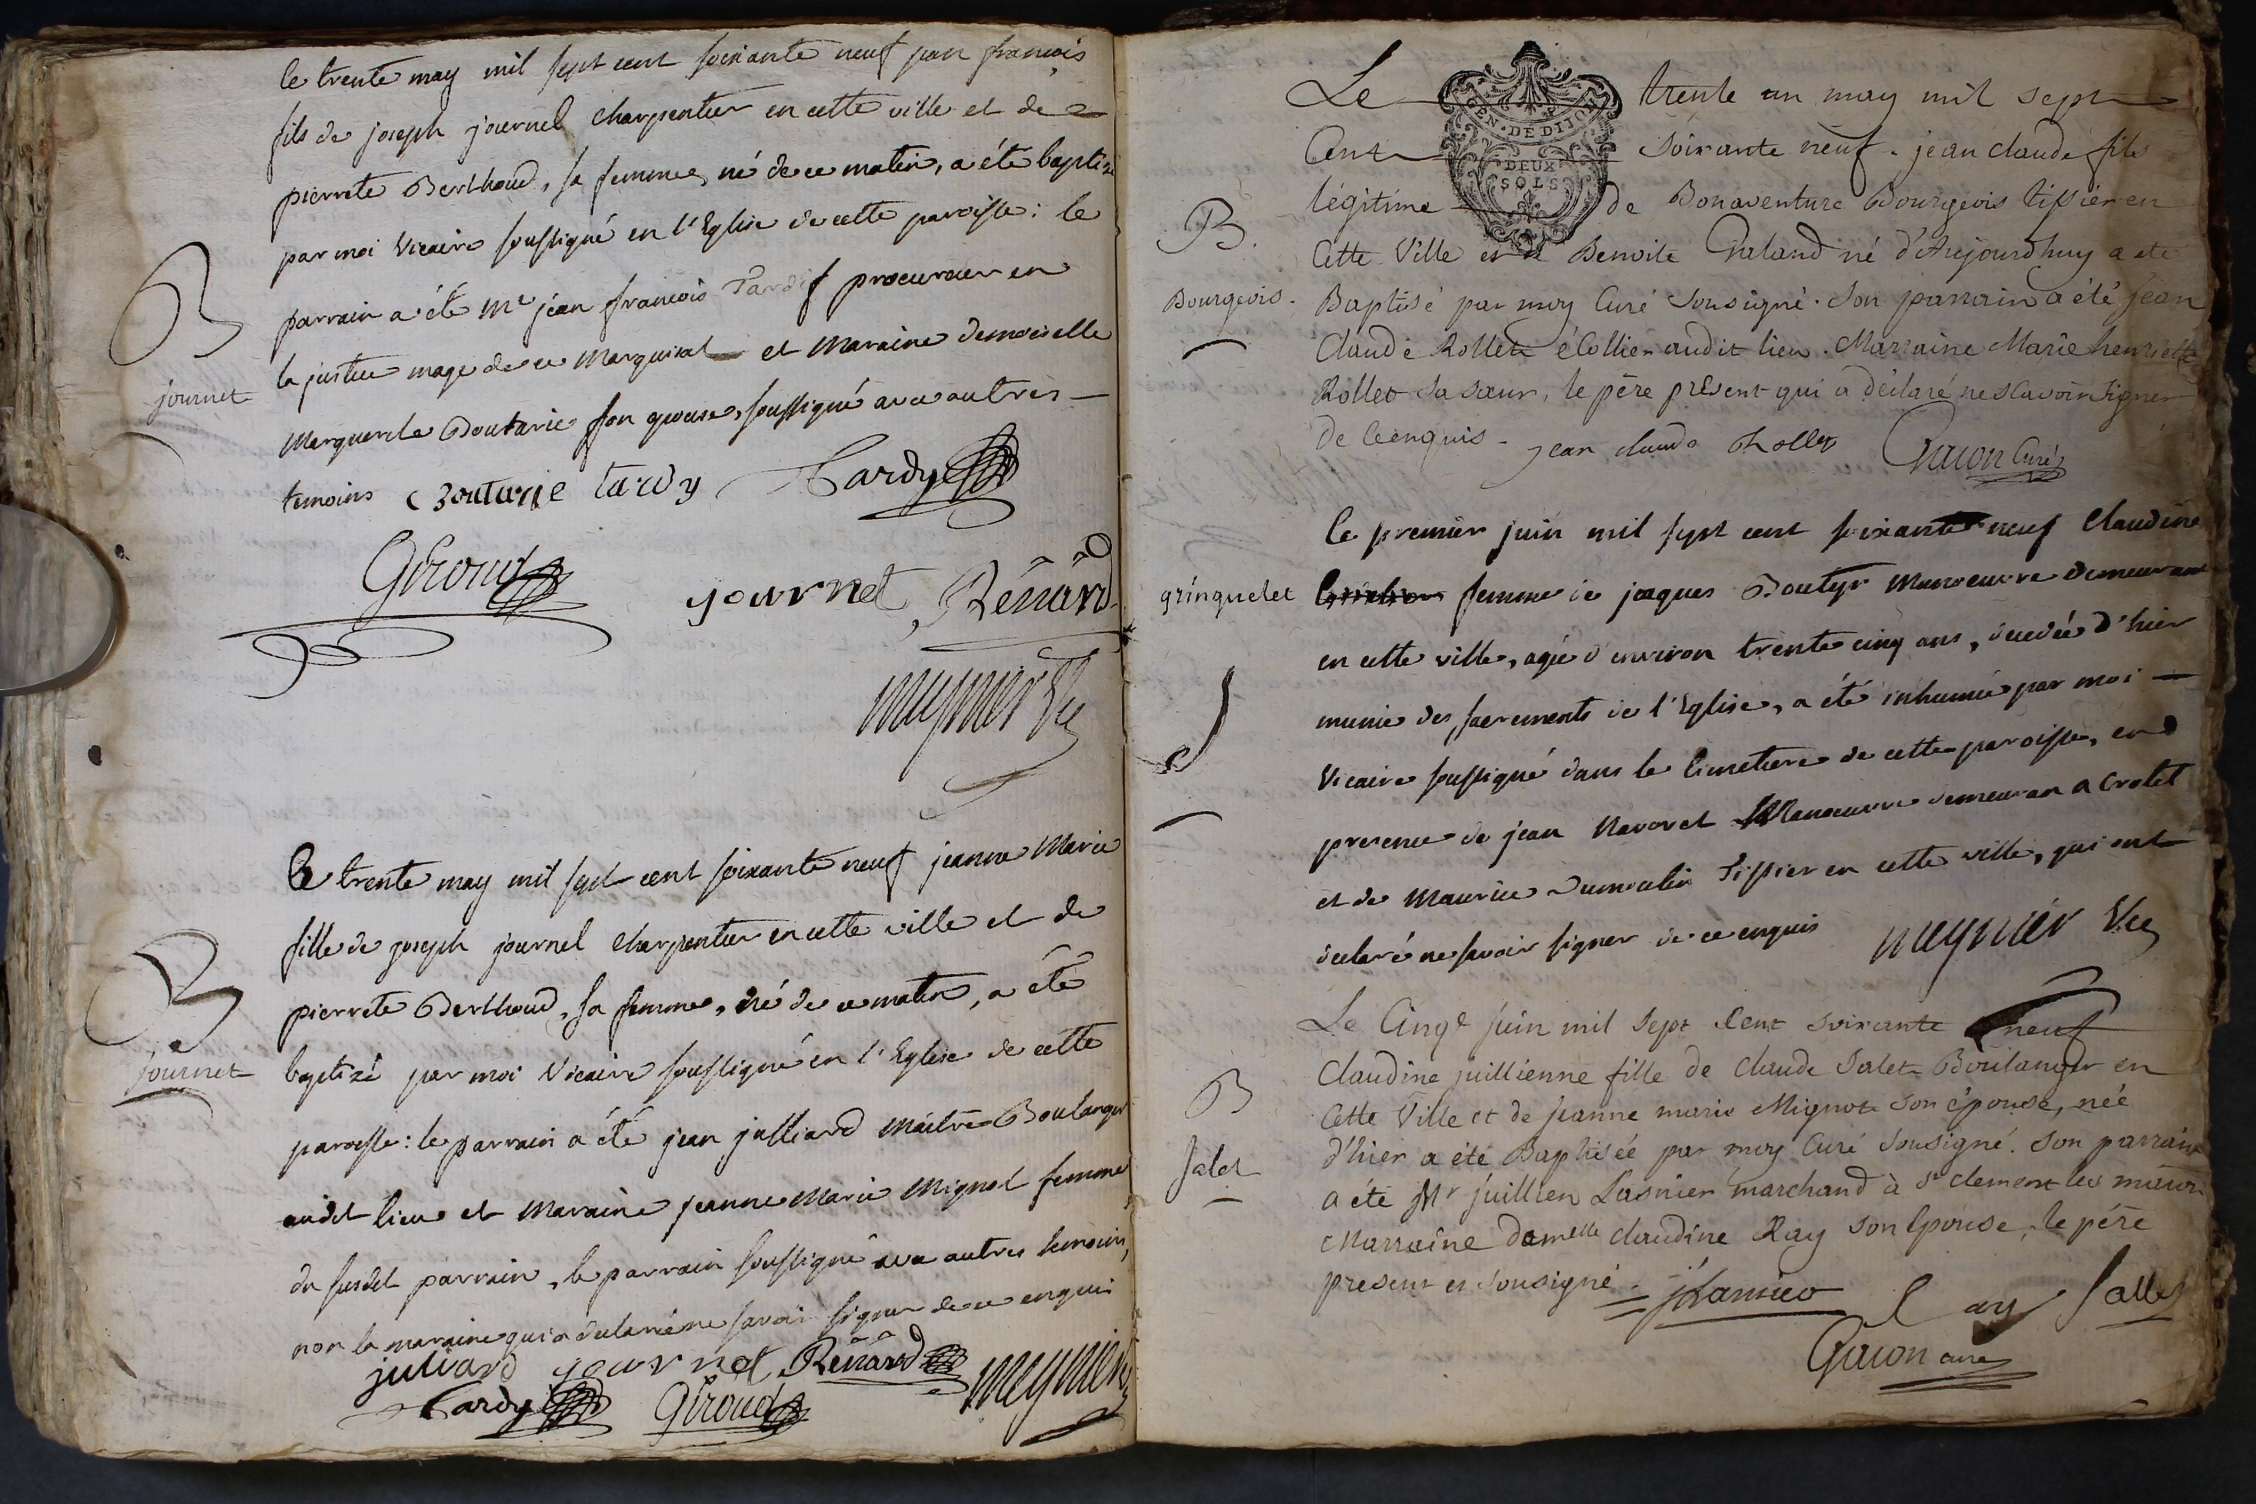 le trente may mil sept cent soixante neuf jean françois
fils de joseph journel charpentier en cette ville et de
pierrete Berthoud, sa femme, né de ce matin, a été baptizé
par moi Vicaire soussigné en l'Eglise de cette paroisse: le
parrain a été Me jean françois Tardif procureur en
B
la justice mage de ce Marquisat et Maraine demoiselle
journet
Marguerite Boutarie son epouse, soussigné avec autres
temoins Boutarie tardy Tardy
Giroud
journet Rénard
meynier Vic
Le trente may mil sept cent soixante neuf jeanne Marie
fille de joseph journel charpentier en cette ville et de
B
pierrete Berthoud, sa femme, né de ce matin, a été
journet
baptizé par moi Vicaire soussigné en l'Eglise de cette
paroisse: le parrain a été jean julliard Maitre Boulanger
audit lieu et Maraine jeanne Marie Mignot femme
du susdit parrain, le parrain soussigné avec autres temoins,
non la maraine qui a declaré ne savoir signer de ce enquis
juliard journet Rénard
Tardy Giroud meynier
Le trente un may mil sept
GEN. DE DIJON
DEUX
SOLS
Cent soixante neuf. jean claude fils
légitime de Bonaventure Bourgeois tissier en
B.
Cette Ville et de Benoite Galand né d'Aujourdhuy a eté
Bourgeois.
Baptisé par moy Curé sousigné. son parrain a été jean
Claude Rollet écollier audit lieu. Marraine Marie henriette
Rollet sa sœur, le père présent qui a déclaré ne sçavoir signer
de ce enquis. jean claude Rollet Gacon Curé
le premier juin mil sept cent soixante neuf Claudine
grinquelet
femme de jacques Manoeuvre demeurant
en cette ville, agée d'environ trente cinq ans, decedée d'hier
munie des sacrements de l'Eglise, a été inhumée par moi
S
Vicaire soussigné dans le Cimetiere de cette paroisse, en
presence de jean Navoret Manoeuvre demeuran a Crotet
et de Maurice Dumoulin Tissier en cette ville, qui ont
declaré ne savoir signer de ce enquis meynier Vic
Le Cinqe juin mil sept Cent soixante neuf
Claudine juillienne fille de Claude Salet Boulanger en
B
Cette Ville et de jeanne marie Mignot son épouse, née
d'hier a été Baptisée par moy Curé sousigné. son parrain
Salet
a été Mr juillien Lasnier marchand à St clement les
Marraine damelle claudine Ray son Epouse, le père
present et sousigné.
Ray Sallet
Gacon curé